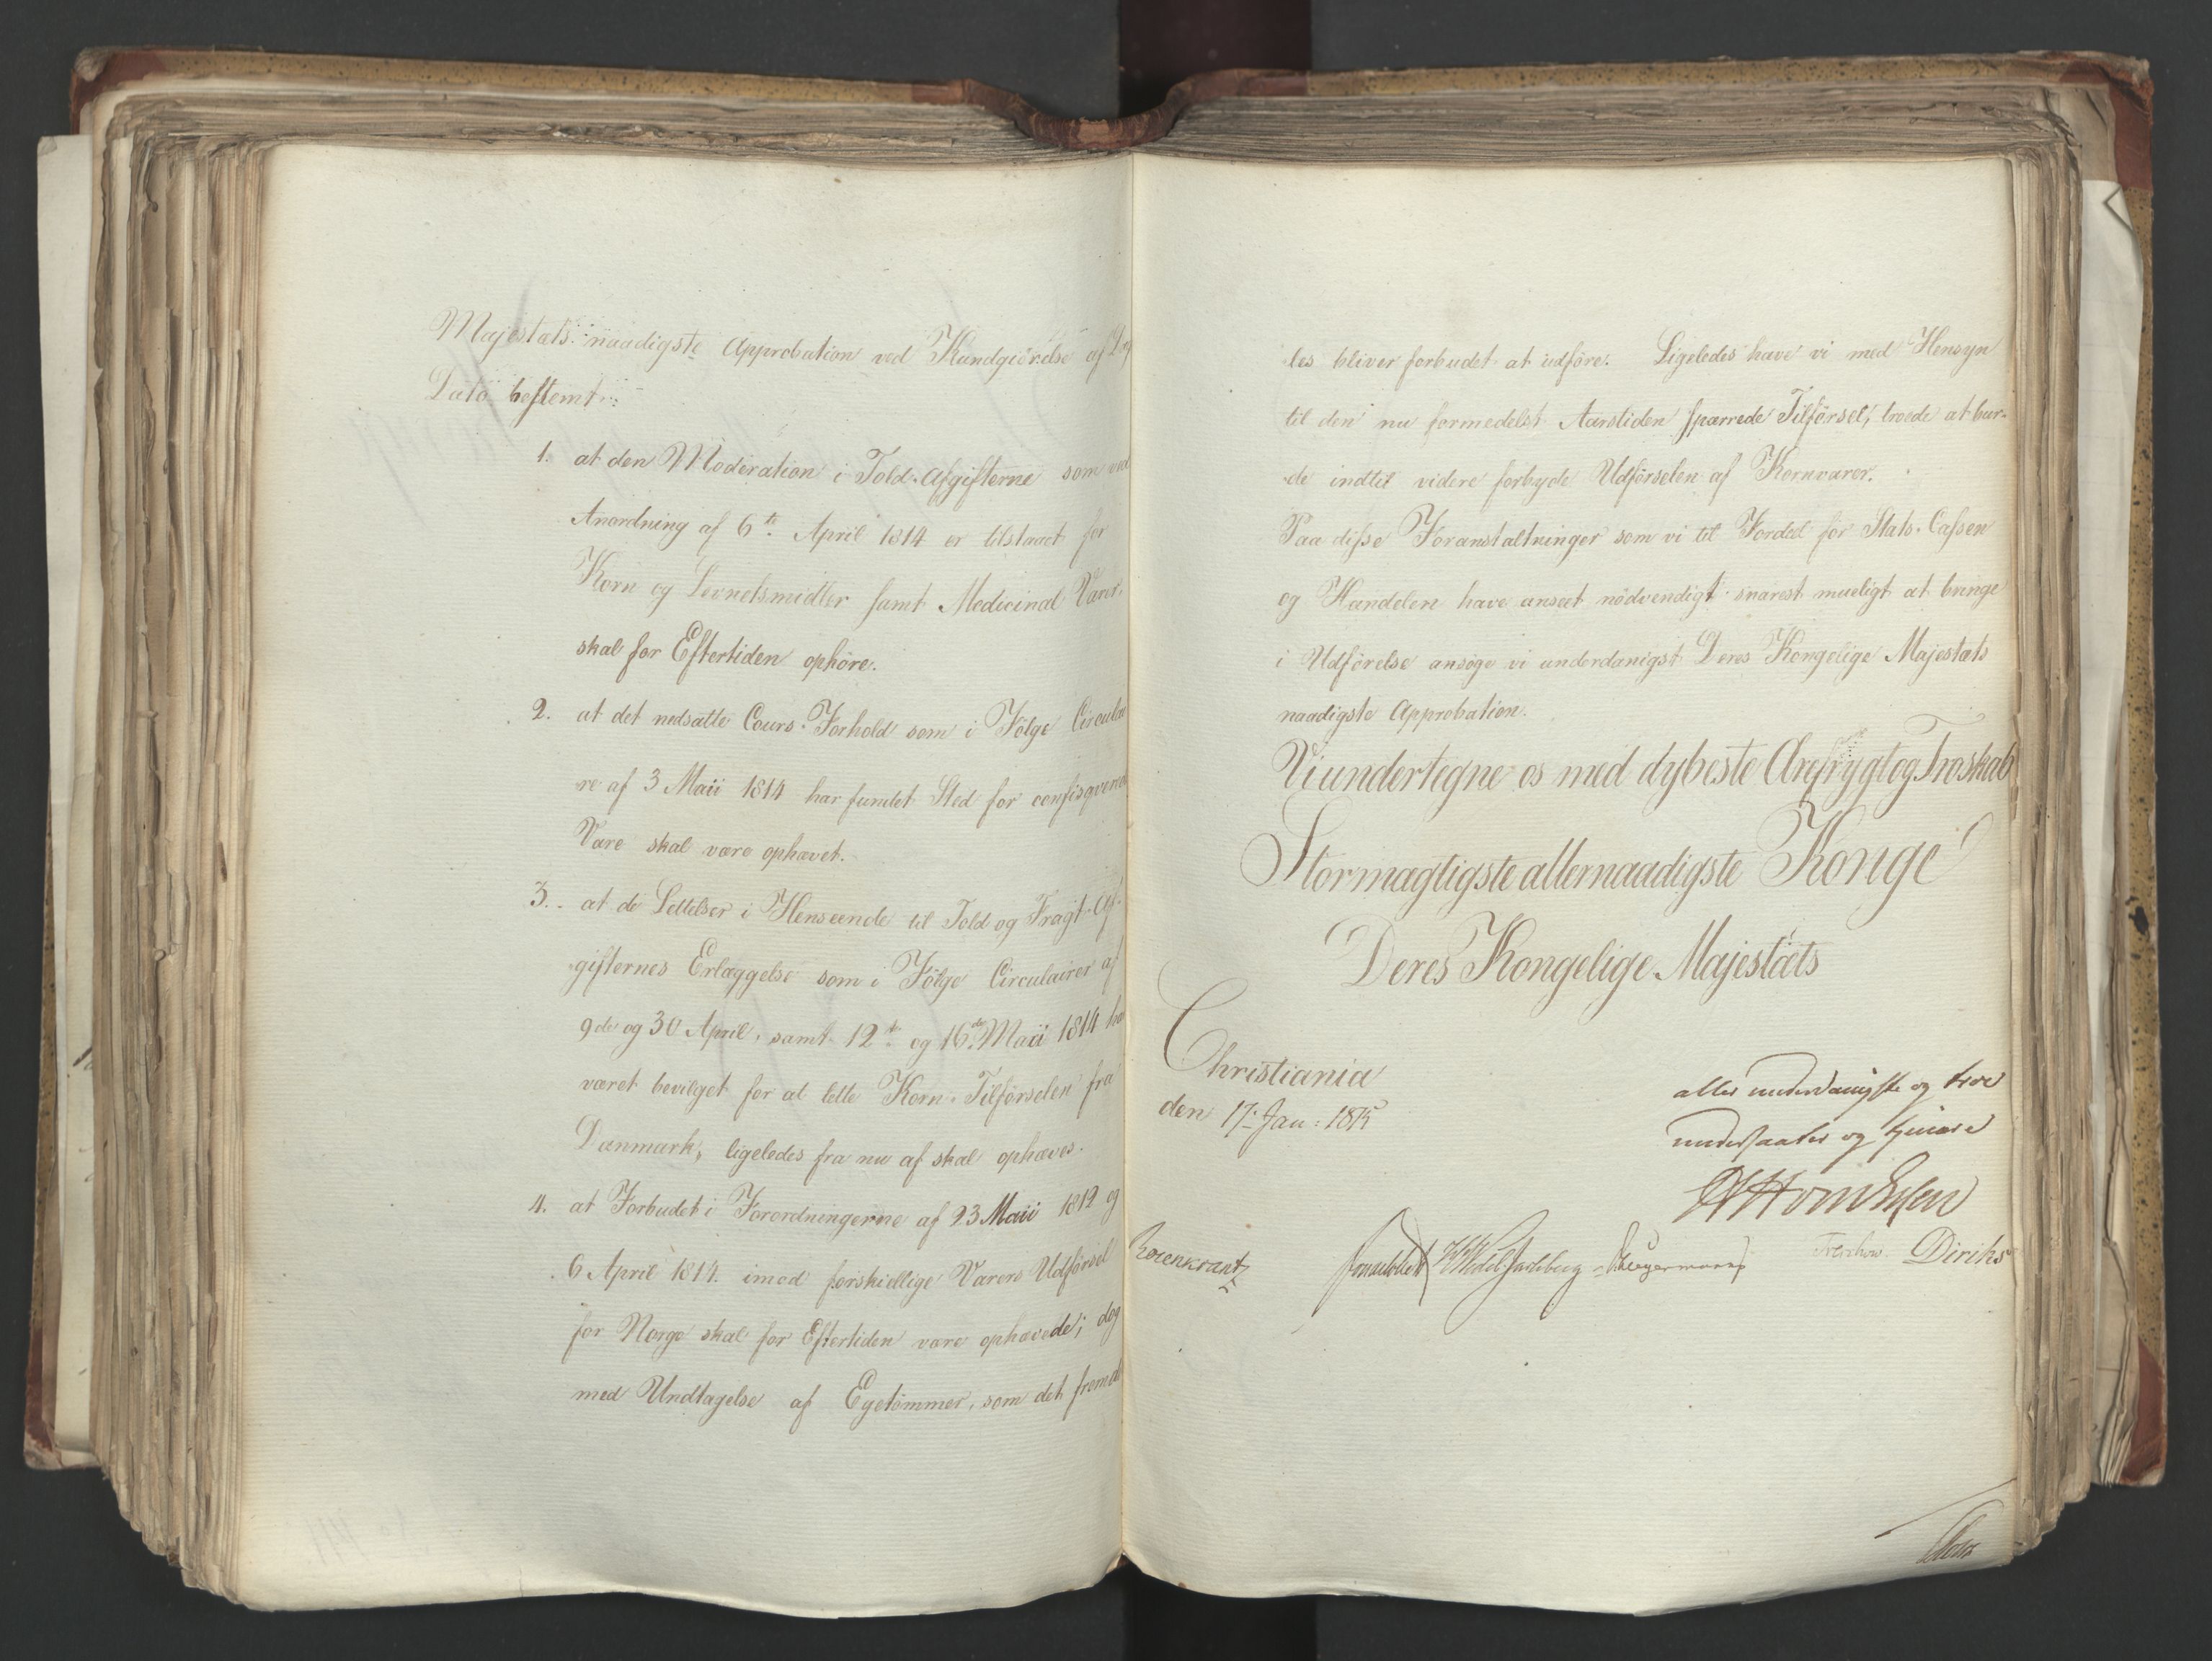 Majestæts naadigste Approbation ved Kundgiørelse af D.
Dato bestemt:
1. at den Moderation i Told-Afgifterne som ved
Anordning af 6te April 1814 er tilstaaet for
Korn og Levnetsmidler samt Medicinal Varer,
skal for Eftertiden ophöre.
2. at det nedsatte Cours-Forhold som i Fölge Circulai
re af 3 Maii 1814 har fundet Sted for confisqverede
Vare skal være ophævet.
3. at de Lettelser i Henseende til Told og Fragt-Af-
gifternes Erlæggelse som i Fölge Circulairer af
9de og 30 April, samt 12te og 16de Maii 1814 har
været bevilget for at lette Korn-Tilförselen fra
Danmark, ligeledes fra nu af skal ophæves.
4. at Forbudet i Forordningerne af 23 Maii 1812 og
6 April 1814 imod forskiellige Varers Udförsel
for Norge skal for Eftertiden være ophævede; dog
med Undtagelse af Egetömmer, som det fremde
les bliver forbudet at udföre. Ligeledes have vi med Hensyn
til den nu formedelst Aarstiden sparrede Tilförsel, troede at bur-
de indtil videre forbyde Udförselen af Kornvarer.
Paa disse Foranstaltninger som vi til Fordeel for Stats-Cassen
og Handelen have anseet nödvendigt snarest mueligt at bringe
i Udförelse ansöge vi underdanigst Deres Kongelige Majestæts
naadigste Approbation.
Vi undertegne os med dybeste Ærefrygt og Troskab
Stormægtigste allernaadigste Konge
Deres Kongelige Majestæts
Christiania
den 17 Jan: 1815
aller underdanigste og troe
undersaatter og tjenere
Rosenkrantz Sommerhielm HWedel Jarlsberg Hegermann Treschow Diriks